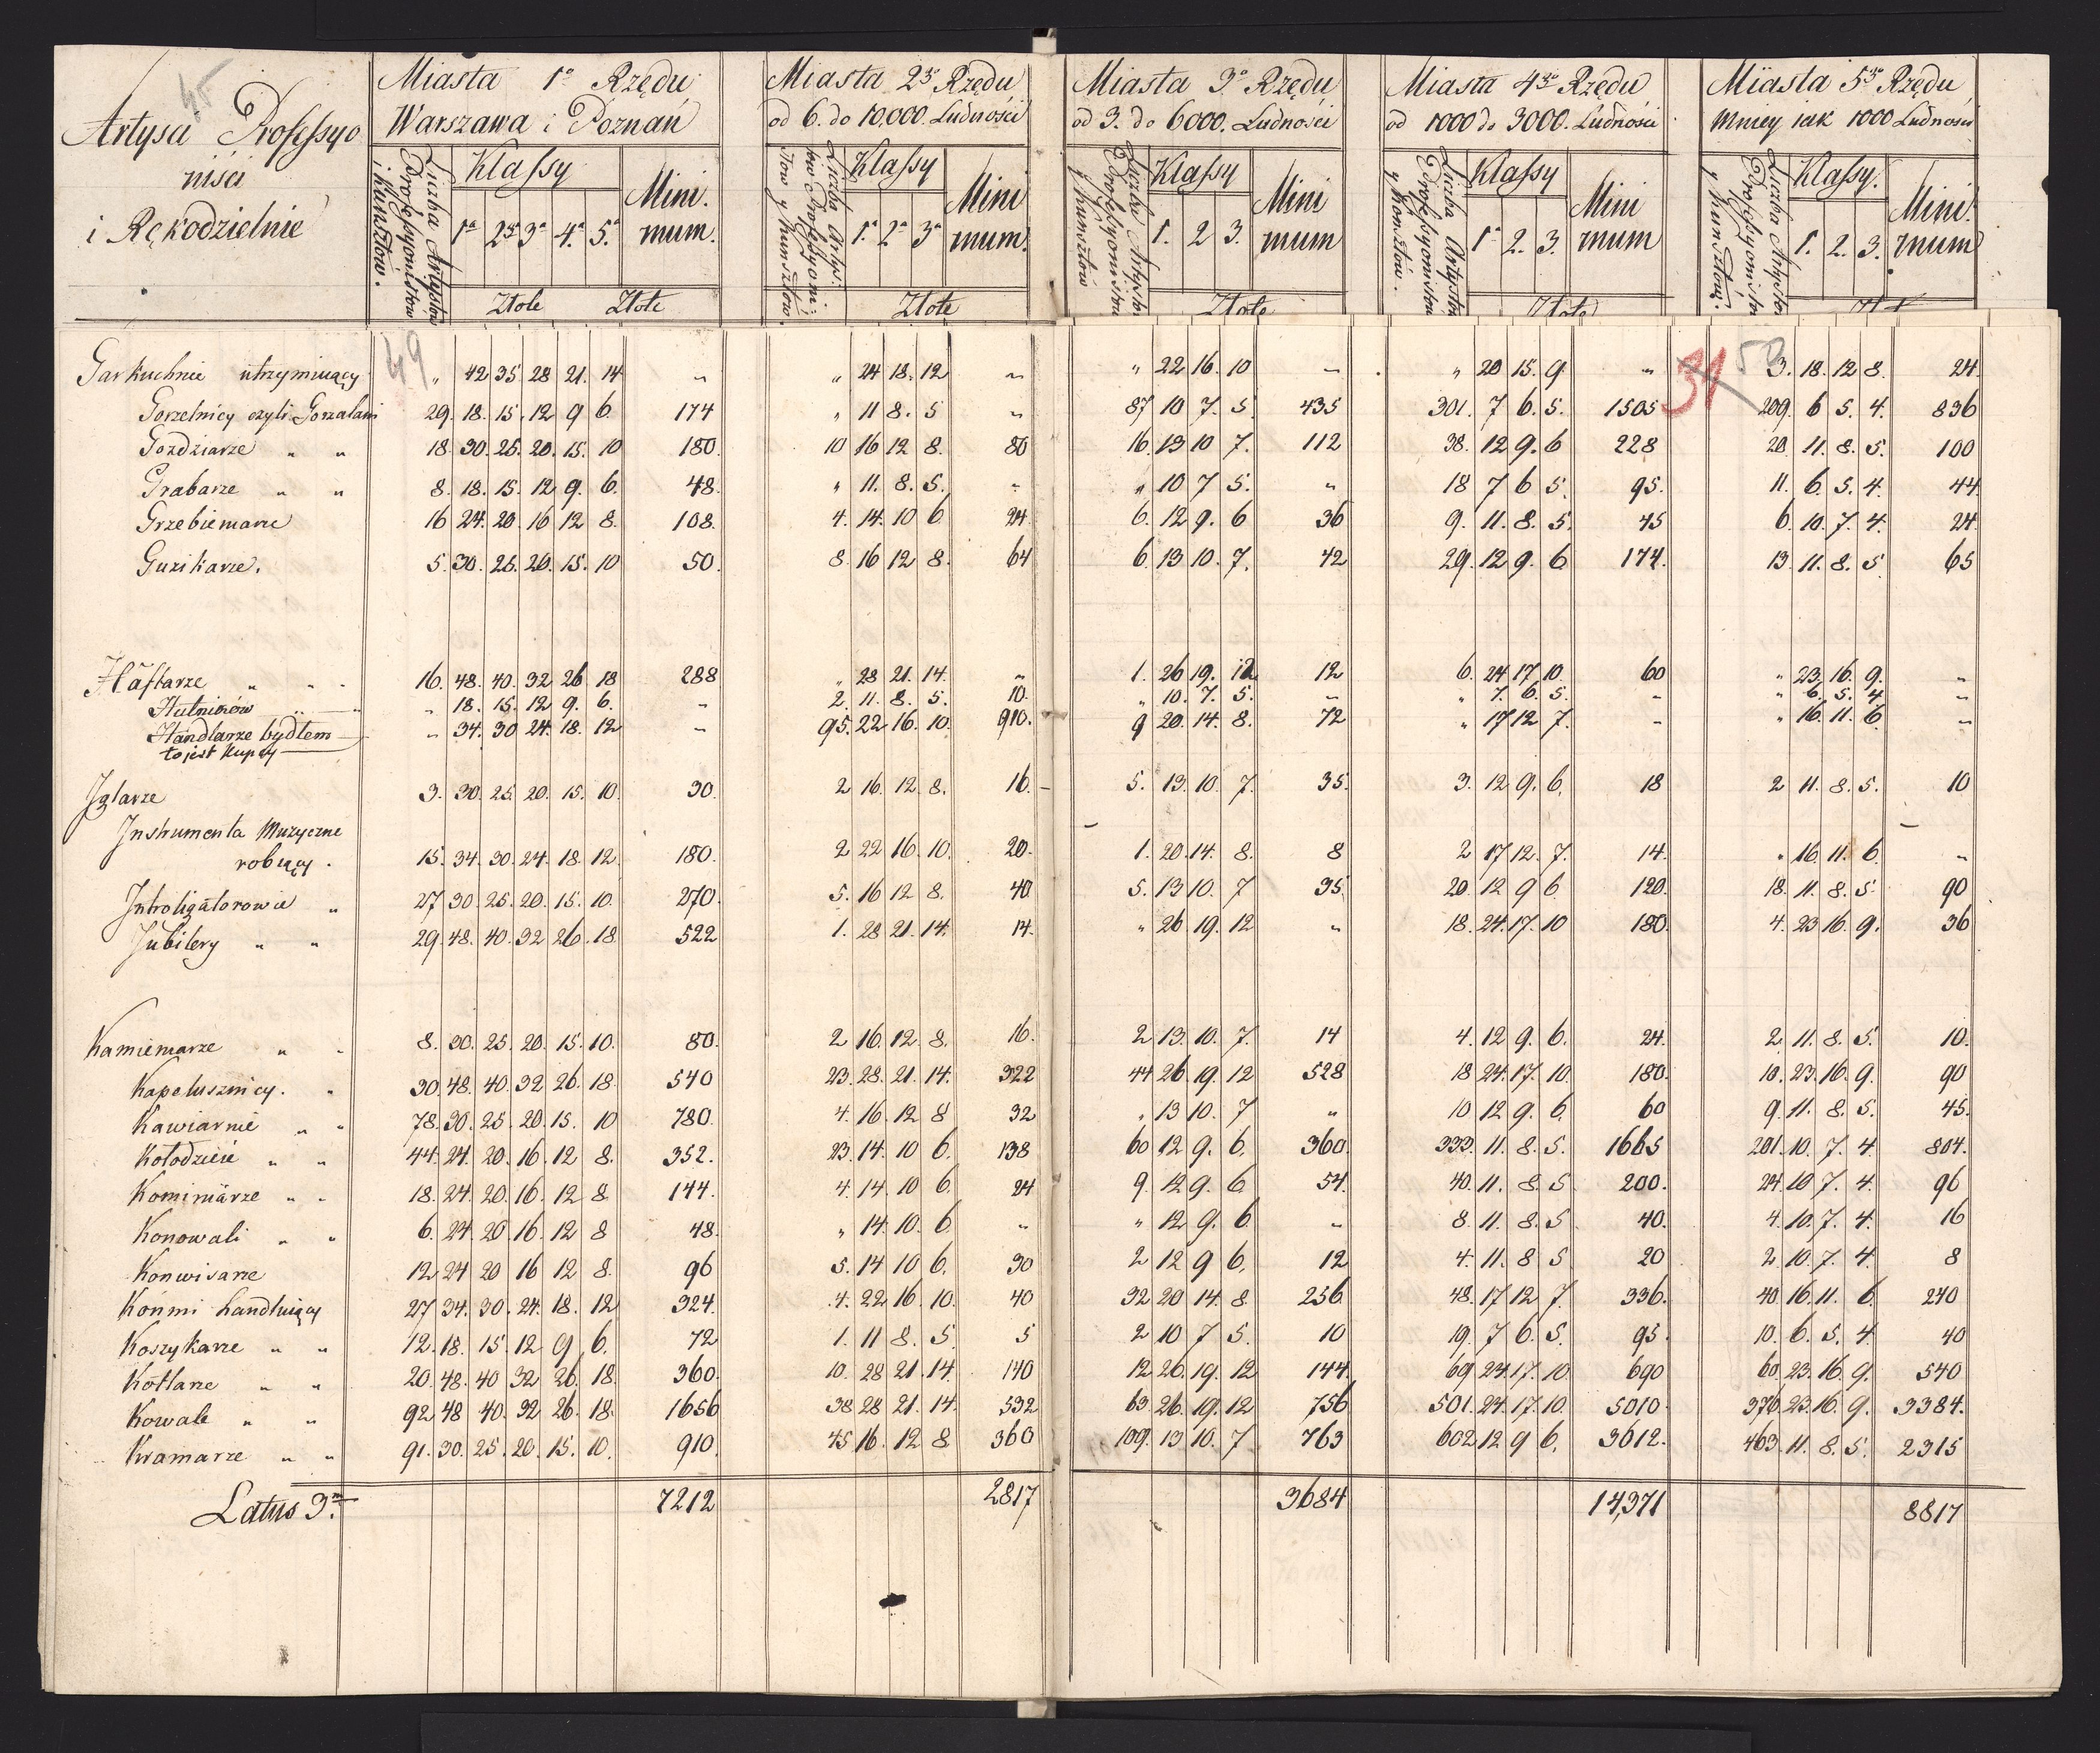 45
Artysci Professyo
niści
i Rękodzielnie
Miasta 1o Rzędu
Warszawa i Poznań
Liczba Artystów
Professyonistów
i Kunsztów.
Klassy
1a 2a 3a 4a 5a
Mini.
mum.
Złote Złote
Miasta 2go Rzędu
od 6. do 10,000. Ludności
Liczba Artys:
tów Professyoni:
stow y Kunsztów.
Klassy
1a 2a 3a
Mini
mum.
Złote
Miasta 3o Rzędu
od 3. do 6000. Ludności
Liczba Artystów
Professyonistów
y Kunsztów
Klassy
1. 2 3.
Mini
mum
Złote
Miasta 4go Rzędu
od 1000 do 3000. Ludności
Liczba Artystów
Professyonistów
y Konsztów.
Klassy
1a 2. 3.
Mini
mum
Złote
Miasta 5go Rzędu
Mniey iak 1000 Ludności
Liczba Artystów
Professyonistów
y Kunsztow.
Klassy.
1. 2. 3.
Mini.
mum
49
31 50
Garkuchnie utrzymuiący " 42 35. 28 21. 14 " " 24 18. 12 " " 22 16. 10 " " 20 15. 9. " 3. 18. 12 8. 24.
Gorzelnicy czyli Gorzalani 29. 18. 15. 12 9 6. 174 " 11 8. 5 " 87 10 7. 5. 435 301. 7 6. 5. 1505 209. 6 5. 4. 836
Gozdziarze " " 18. 30. 25. 20. 15. 10 180. 10 16 12 8. 80 16. 13 10 7. 112 38. 12 9. 6 228 20. 11. 8. 5. 100
Grabarze " " 8. 18. 15. 12 9. 6. 48. " 11. 8. 5. " " 10 7 5. " 18 7 6 5. 95. 11. 6. 5. 4. 44.
Grzebieniarze 16 24. 20. 16 12 8. 108. 4. 14. 10 6. 24 6. 12 9. 6 36 9. 11. 8. 5. 45 6. 10. 7. 4. 24.
Guzikarze. 5. 30. 25. 20. 15. 10 50. 8. 16 12 8. 64 6. 13 10. 7. 42 29. 12 9. 6 174. 13. 11. 8. 5 65
Haftarze " " 16. 48. 40. 32 26 18 288 " 28 21. 14. " 1. 26 19. 12 12 6. 24 17 10. 60 " 23. 16. 9. "
Hutników " " " 18. 15. 12 9. 6. " 2. 11. 8. 5. 10. " 10. 7. 5. " " 7. 6. 5. " " 6. 5. 4 "
Handlarze bydłem " 34. 30 24. 18. 12 " 95. 22 16. 10. 910. 9 20. 14. 8. 72 " 17 12 7. " " 16. 11. 6 "
to jest Kupcy
Jglarze 3. 30. 25. 20. 15. 10. 30. 2 16. 12. 8. 16. 5. 13. 10. 7. 35. 3. 12 9. 6. 18 2 11. 8. 5. 10
Jnstrumenta Muzyczne
robiący. 15. 34. 30. 24. 18. 12 180. 2 22 16. 10. 20. 1. 20. 14. 8. 8 2 17 12. 7. 14. " 16. 11. 6. "
Jntroligatorowie " 27 30. 25. 20. 15. 10. 270. 5. 16 12 8. 40 5. 13 10. 7 35 20 12 9 6 120. 18. 11. 8. 5. 90
Jubilery " " 29. 48. 40. 32 26. 18. 522 1. 28 21. 14. 14. " 26 19. 12 " 18. 24. 17. 10 180. 4. 23 16. 9. 36
Kamieniarze " " 8. 30. 25. 20. 15. 10. 80. 2 16. 12 8. 16. 2 13. 10. 7. 14 4. 12 9. 6. 24. 2 11. 8. 5. 10.
Kapelusznicy. " 30. 48. 40. 32 26. 18. 540 23. 28. 21. 14. 322 44 26. 19. 12 528 18 24. 17. 10. 180. 10. 23. 16. 9. 90
Kawiarnie " " 78. 30. 25. 20. 15. 10 780. 4. 16. 12 8 32 " 13 10. 7 " 10 12 9. 6. 60 9. 11. 8. 5. 45.
Kołodzieie " " 44. 24. 20. 16. 12 8. 352. 23. 14. 10 6. 138 60 12 9. 6. 360. 333. 11. 8. 5. 1665 201. 10. 7. 4. 804.
Kominiarze " " 18. 24. 20. 16. 12 8. 144. 4. 14. 10 6. 24 9. 12 9. 6 54. 40. 11. 8. 5 200. 24. 10 7. 4. 96
Konowali " " 6. 24. 20 16. 12 8 48. " 14. 10. 6. " " 12 9. 6. " 8. 11. 8. 5 40. 4. 10. 7. 4. 16
Konwisarze 12 24 20 16 12 8. 96 5. 14 10 6. 30 2 12 9 6. 12 4. 11. 8 5 20 2. 10. 7. 4. 8
Końmi handluiący 27 34. 30. 24. 18. 12 324. 4. 22 16. 10. 40 32 20 14. 8. 256. 48. 17 12 7. 336. 40. 16. 11. 6. 240
Koszykarze " " 12. 18. 15. 12 9 6. 72 1. 11 8. 5. 5 2 10 7 5. 10 19. 7 6. 5. 95. 10. 6. 5. 4. 40
Kotlarze " " 20. 48. 40 32 26. 18. 360. 10. 28 21. 14. 140 12 26. 19. 12 144. 69 24. 17. 10. 690 60. 23. 16. 9. 540
Kowale " " 92 48 40. 32 26. 18. 1656 38 28 21. 14. 532 63. 26. 19. 12 756 501. 24. 17. 10. 5010. 376 23. 16. 9. 3384.
Kramarze " " 91. 30. 25. 20. 15. 10. 910. 45 16. 12 8 360 109. 13 10. 7 763 602 12 9 6. 3612. 463. 11. 8. 5. 2315
Latus 3m. 7212 2817 3684 14,371 8817